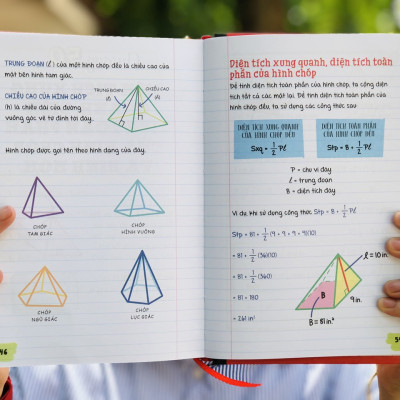 TRUNG ĐOẠN (ℓ) của một hình chóp đều là chiều cao của
mặt bên hình tam giác.
CHIỀU CAO CỦA HÌNH CHÓP
(h) là chiều dài của đường
vuông góc vẽ từ đỉnh tới đáy.
TRUNG ĐOẠN
(ℓ)
CHIỀU CAO
(h)
Hình chóp được gọi tên theo hình dạng của đáy.
CHÓP
TAM GIÁC
CHÓP
HÌNH VUÔNG
CHÓP
NGŨ GIÁC
CHÓP
LỤC GIÁC
46
Diện tích xung quanh, diện tích toàn
phần của hình chóp
Để tính diện tích toàn phần của hình chóp, ta cộng diện
tích tất cả các mặt lại. Để tính diện tích toàn phần của
hình chóp đều, ta sử dụng các công thức sau:
DIỆN TÍCH XUNG QUANH
CỦA HÌNH CHÓP ĐỀU
Sxq = 1/2 Pℓ
DIỆN TÍCH TOÀN PHẦN
CỦA HÌNH CHÓP ĐỀU
Stp = B + 1/2 Pℓ
P = chu vi đáy
ℓ = trung đoạn
B = diện tích đáy
Ví dụ, khi sử dụng công thức Stp = B + 1/2 Pℓ
Stp = 81 + 1/2 (9 + 9 + 9 + 9)(10)
= 81 + 1/2 (36)(10)
= 81 + 1/2 (360)
= 81 + 180
= 261 in²
ℓ = 10 in.
B
9 in.
B = 81 in.²